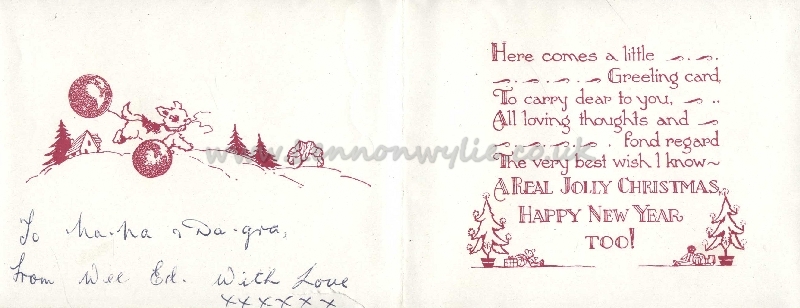 To Na-Na & Da-gra,
From Wee Ed. With Love
xxxxxx
Here comes a little
Greeting card,
To carry dear to you,
All loving thoughts and
fond regard
The very best wish I know~
A REAL JOLLY CHRISTMAS,
HAPPY NEW YEAR
TOO!